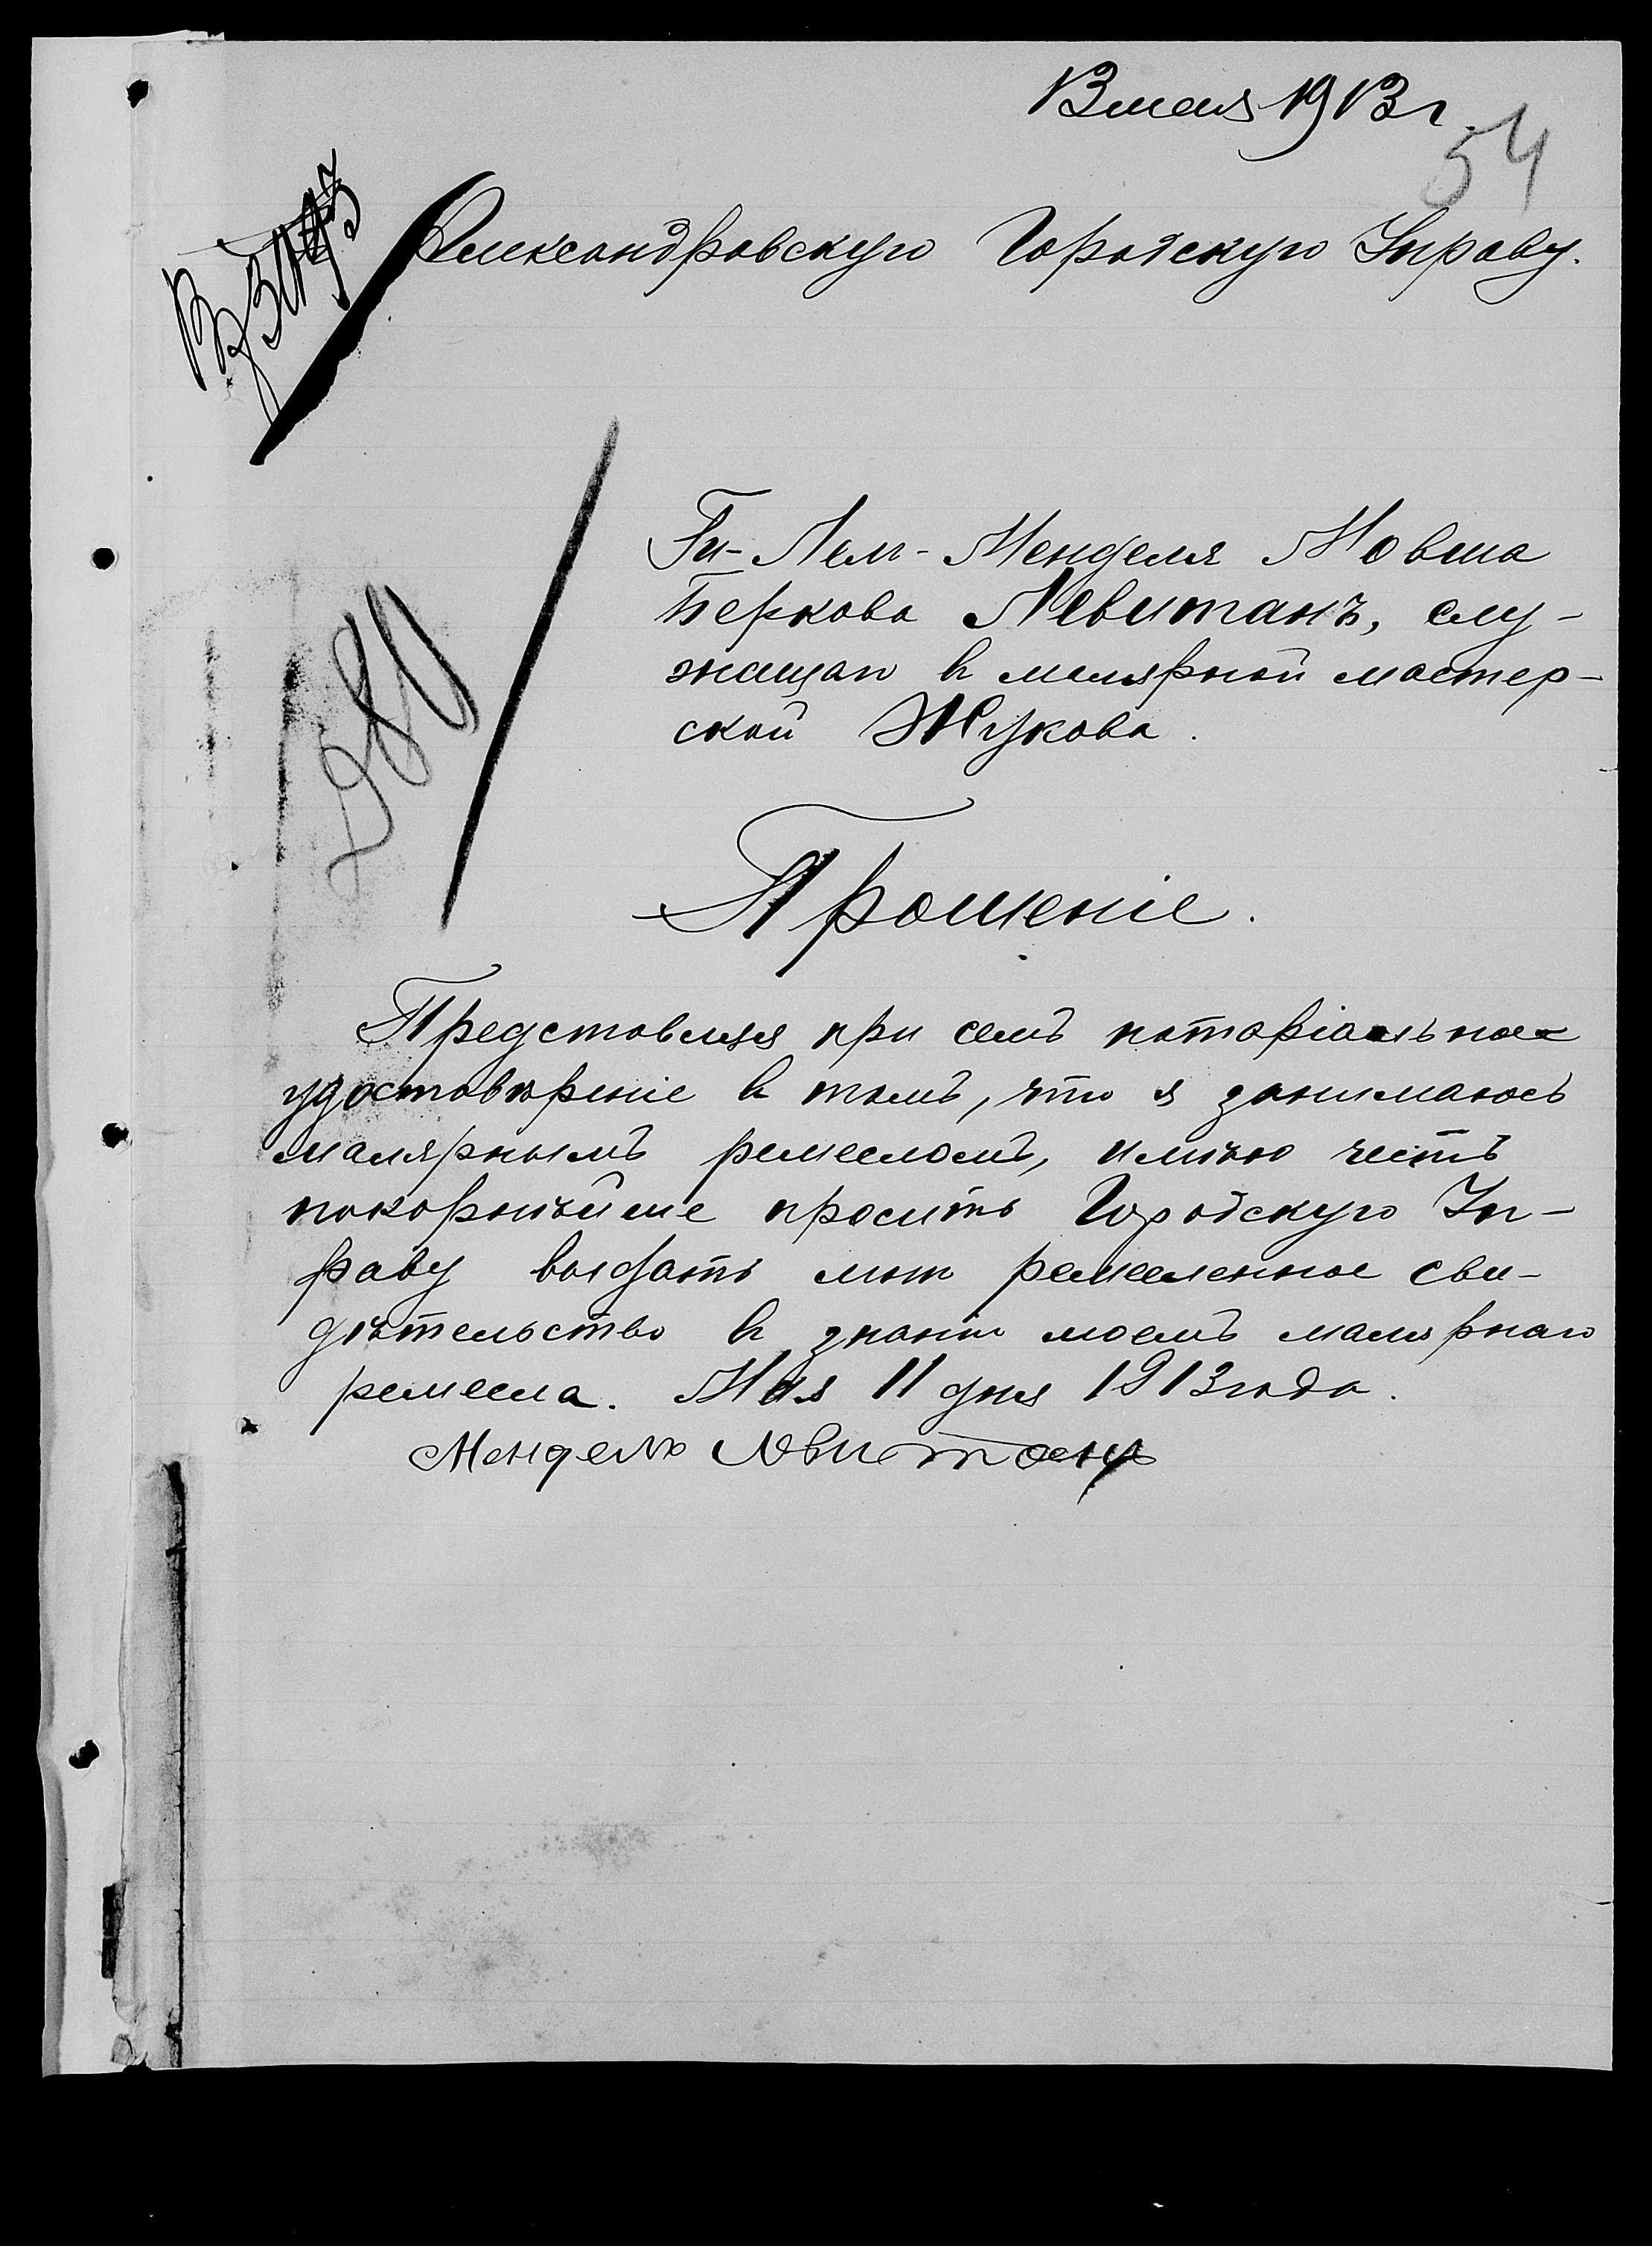 13 мая 1913 г.
54
Александровскую Городскую Управу.
Ги-Лем-Менделя Мовша
Беркова Левитанъ, слу-
жащаго в малярной мастер-
ской Жукова.
980
Прошеніе.
Представляя при семъ нотаріальное
удостовѣреніе в томъ, что я занимаюсь
малярнымъ ремесломъ, имѣю честь
покорнѣйше просить Городскую Уп-
раву выдать мнѣ ремесленное сви-
дѣтельство в знаніи моемъ малярнаго
ремесла. Мая 11 дня 1913 года.
Мендель Левитанъ